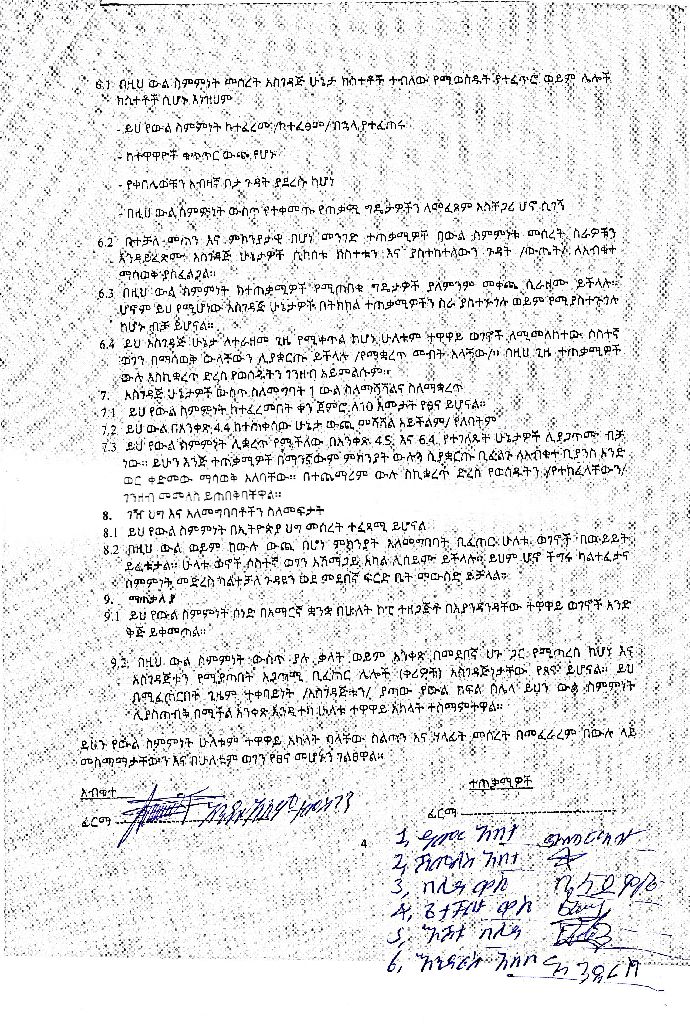 6.1 በዚህ ውል ስምምነት መሰረት አስገዳጅ ሁኔታ ክስተቶች ተብለው የሚወሰዱት ያተፈጥሮ ወይም ሌሎች
ክስተቶች ሲሆኑ እነዚህም
- ይህ የውል ስምምነት ከተፈረመ/ከተፈፀመ/ በኋላ የተፈጠሩ
- ከተዋዋዮች ቁጥጥር ውጪ የሆኑ
- የቀበሌዎቹን አብዛኛ ቦታ ጉዳት ያደረሱ ከሆነ
- በዚህ ውል ስምምነት ውስጥ የተቀመጡ የጠቃሚ ግዴታዎችን ለመፈጸም አስቸጋሪ ሆኖ ሲገኝ
6.2 በተቻለ መጠን እና ምክንያታዊ በሆነ መንገድ ተጠቃሚዎች በውል ስምምነቱ መሰረት ስራዎቹን
እንዳይፈጽሙ አስገዳጅ ሁኔታዎች ሲከሰቱ ክስተቱን እና ያስከተለውን ጉዳት /ውጤት/ ለእብቁተ
ማሳወቅ ያስፈልጋል።
6.3 በዚህ ውል ስምምነት ከተጠቃሚዎች የሚጠበቁ ግዴታዎች ያለምንም መቀጫ ሊራዘሙ ይችላሉ።
ሆኖም ይህ የሚሆነው አስገዳጅ ሁኔታዎች በትክክል ተጠቃሚዎችን ስራ ያስተጓጎሉ ወይም የሚያስተጓጎሉ
ከሆኑ ብቻ ይሆናል።
6.4 ይህ አስገዳጅ ሁኔታ ለተራዘመ ጊዜ የሚቀጥል ከሆነ ሁለቱም ተዋዋይ ወገኖች ለሚመለከተው ሶስተኛ
ወገን በማሳወቅ ውላቸውን ሊያቋርጡ ይችላሉ /የማቋረጥ መብት አላቸው/። በዚህ ጊዜ ተጠቃሚዎች
ውሉ እስኪቋረጥ ድረስ የወሰዱትን ገንዘብ አይመልሱም።
7. አስገዳጅ ሁኔታዎች ውስጥ ስለመግባት 1 ውል ስለማሻሻልና ስለማቋረጥ
7.1 ይህ የውል ስምምነት ከተፈረመበት ቀን ጀምሮ ለ10 አመታት የፀና ይሆናል።
7.2 ይህ ውል በአንቀጽ 4.4 ከተጠቀሰው ሁኔታ ውጪ መሻሻል አይችልም/ የለበትም
7.3 ይህ የውል ስምምነት ሊቋረጥ የሚችለው በአንቀጽ 4.5 እና 6.4 የተገለጹት ሁኔታዎች ሲያጋጥሙ ብቻ
ነው። ይሁን እንጅ ተጠቃሚዎች በማንኛውም ምክንያት ውሉን ሲያቋርጡ ቢፈልጉ ለእብቁተ ቢያንስ አንድ
ወር ቀድመው ማሳወቅ አለባቸው። በተጨማሪም ውሉ ስኪቋረጥ ድረስ የወሰዱትን /የተከፈላቸውን/
ገንዘብ መመለስ ይጠበቅባቸዋል።
8. ገዥ ህግ እና አለመግባባቶችን ስለመፍታት
8.1 ይህ የውል ስምምነት በኢትዮጵያ ህግ መሰረት ተፈጻሚ ይሆናል
8.2 በዚህ ውል ወይም ከውሉ ውጪ በሆነ ምክንያት አለመግባባት ቢፈጠር ሁለቱ ወገኖች በውይይት
ይፈቱታል። ሁለቱ ወኖች ሶስተኛ ወገን አሸማጋይ አካል ሊሰይሙ ይችላሉ። ይህም ሆኖ ችግሩ ካልተፈታና
ስምምነት መድረስ ካልተቻለ ጉዳዩን ወደ መደበኛ ፍርድ ቤት መውሰድ ይቻላል።
9. ማጠቃለያ
9.1 ይህ የውል ስምምነት ሰነድ በአማርኛ ቋንቋ በሁለት ኮፒ ተዘጋጅቶ በእያንዳንዳቸው ተዋዋይ ወገኖች አንድ
ቅጅ ይቀመጣል።
9.2 በዚህ ውል ስምምነት ውስጥ ያሉ ቃላት ወይም አንቀጽ በመደበኛ ህጉ ጋር የሚጣረስ ከሆነ እና
አስገዳጅቱን የሚያጣበት አጋጣሚ ቢፈጠር ሌሎች (ቀሪዎች) አስገዳጅነታቸው የጸና ይሆናል። ይህ
በሚፈጠርበት ጊዜም ተቀባይነት /አስገዳጅቱን/ ያጣው ያውል ክፍል ስሌላ ይህን ውል ስምምነት
ሊያስጠብቅ በሚችል አንቀጽ እንዲተካ ሁለቱ ተዋዋይ አካላት ተስማምትዋል።
ይህን የውል ስምምነት ሁለቱም ተዋዋይ አካላት ባላቸው ስልጣን እና ሃላፊት መሰረት በመፈራረም በውሉ ላይ
መስማማታቸውን እና በሁለቱም ወገን የፀና መሆኑን ገልፀዋል።
እብቁተ
ተጠቃሚዎች
ፊርማ
ፊርማ
4
1,
2,
3, በሪዳ
4,
5, በሪዳ
6,